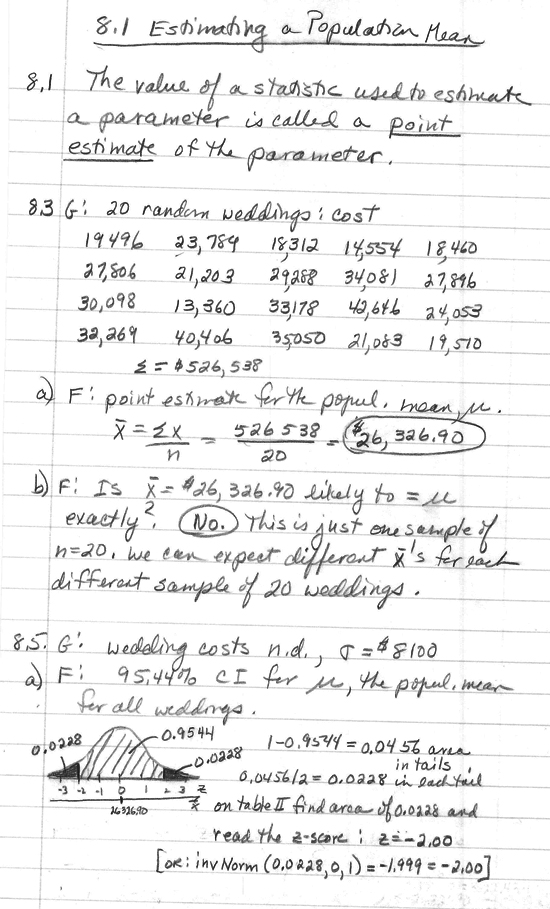 8.1 Estimating a Population Mean
8.1 The value of a statistic used to estimate
a parameter is called a point
estimate of the parameter.
8.3 G: 20 random weddings: cost
19496 23,789 18,312 14,554 18,460
27,806 21,203 29,288 34,081 27,896
30,098 13,360 33,178 42,646 24,053
32,269 40,406 35,050 21,083 19,510
Σ = $526,538
a) F: point estimate for the popul. mean, μ.
x̄ = Σx/n = 526 538/20 = $26,326.90
b) F: Is x̄ = $26,326.90 likely to = μ
exactly? No. This is just one sample of
n=20. We can expect different x̄'s for each
different sample of 20 weddings.
8.5. G: wedding costs n.d., σ = $8100
a) F: 95.44% CI for μ, the popul. mean
for all weddings.
0.0228 0.9544 0.0228 1-0.9544 = 0.0456 area
in tails
0.0456/2 = 0.0228 in each tail
-3 -2 -1 0 1 2 3 z
26326.90 x̄ on table II find area of 0.0228 and
read the z-score: z = -2.00
[OR: invNorm (0.0228,0,1) = -1.999 = -2.00]